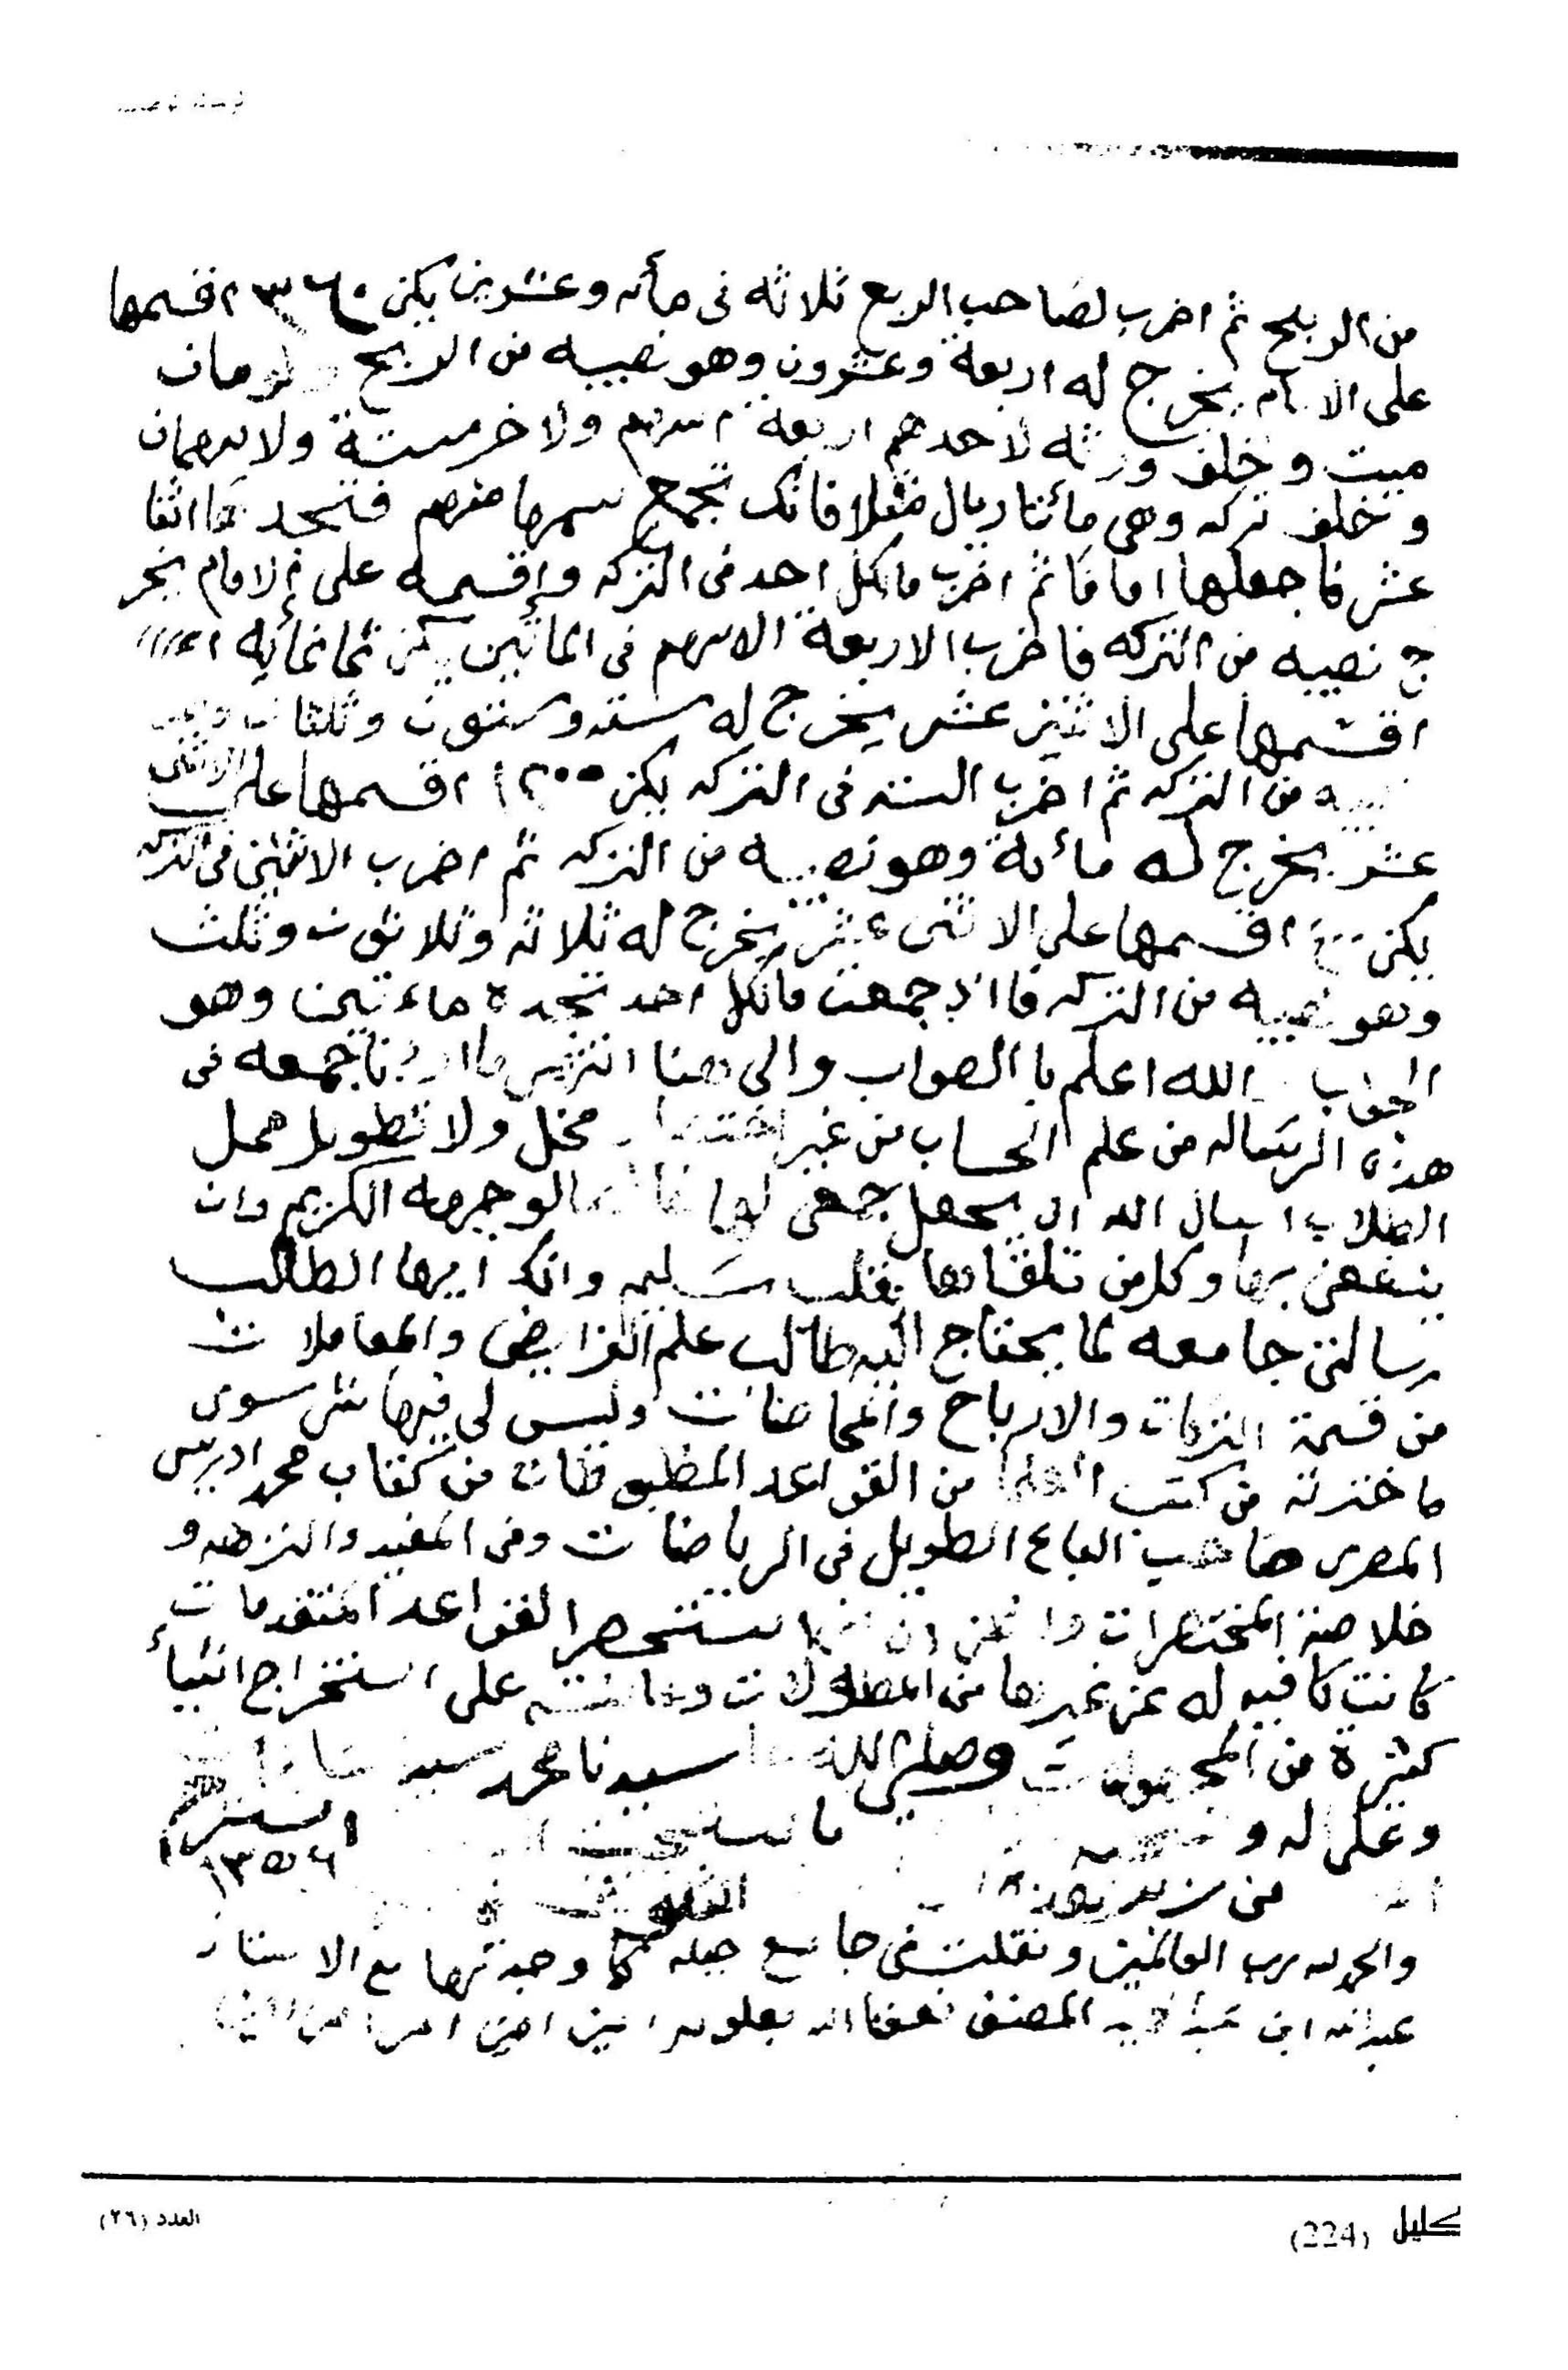 من الربح ثم اضرب لصاحب الربع ثلاثه في مأئه وعشرين يكن ٣٦٠ اقسمها
على الامام يخرج له اربعة وعشرون وهو نصيبه من الربح ولومات
ميت وخلف ورثه لاحدهم اربعة اسهم ولاخر ستة ولا سهمان
وتخلف تركه وهي مائتا ريال مثلا فانك تجمع سهامهم فتجدها اثنا
عشر فاجعلها اماما ثم اضرب مالكل احد في التركه وإقسمه على الامام يخر
ج نصيبه من التركه فاضرب الاربعة الاسهم في المائتين يكن ثمانمائه
اقسمها على الاثنين عشر يخرج له سته وستون وثلثان
من التركه ثم اضرب السته في التركه يكن ١٢٠٠ اقسمها على الاثنى
عشر يخرج له مأئة وهو نصيبه من التركه ثم اضرب الاثنين في التركه
يكن اقسمها على الاثنى عشر يخرج له ثلاثه وثلاثون وثلث
وهو نصيبه من التركه فااذ جمعت مالكل احد تجده ماءتين وهو
الجواب الله اعلم باالصواب والى هنا انتهى ما اردنا جمعه في
هذه الرساله من علم الحساب من غير اختصار مخل ولا تطويل ممل
الطلاب اسال الله ان يجعل جمعي لها خالصا لوجهه الكريم وان
ينفعني بها وكل من تلقاها بقلب سليم وانك ايها الطالب
رسالتي جامعه لما يحتاج اليه طالب علم الفرايض والمعاملات
من قسمة التركات والارباح والمحاصات وليس لي فيها شى سوى
ماخترته من كتب العلما من القواعد المطلوبات من كتاب محمد ادريس
المصرى صاحب الباع الطويل في الرياضات وفي المفيد والنزهه و
خلاصة المختصرات ان يستحصر القواعد المتقدمات
كانت كافيه له عن غيرها من المطولات وعلى استخراج اشياء
كثيرة من المجهولات وصلى الله سيدنا محمد
وعلى اله و
١٣٥٦
والحمد لله رب العالمين ونقلت في جامع جبله كما وجدتها مع الاستاذ
عبدالله ابن المصنف نفعنا الله بعلومه امين امين
كليل (224)
العدد (٢٦)